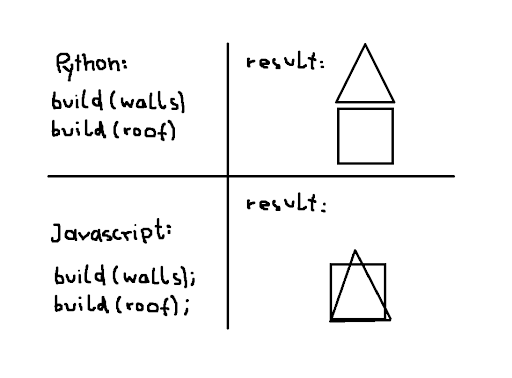 Python:
build(walls)
build(roof)
result:
Javascript:
build(walls);
build(roof);
result: